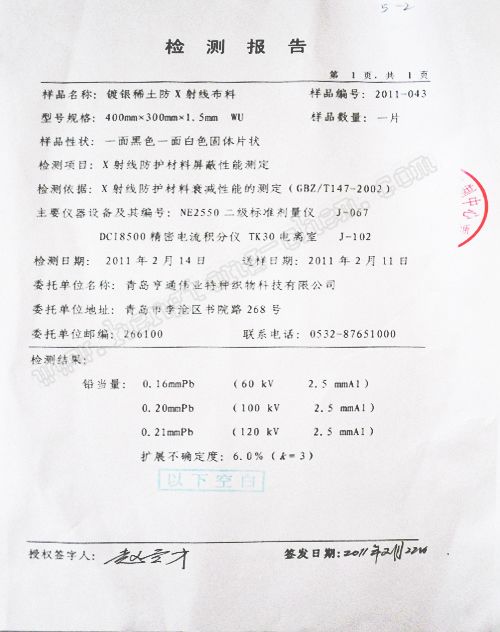 5-2
检测报告
第 1 页，共 1 页
样品名称：镀银稀土防 X 射线布料 样品编号：2011-043
型号规格：400mm×300mm×1.5mm WU 样品数量：一片
样品性状：一面黑色一面白色固体片状
检测项目：X 射线防护材料屏蔽性能测定
检测依据：X 射线防护材料衰减性能的测定（GBZ/T147-2002）
主要仪器设备及其编号：NE2550 二级标准剂量仪 J-067
DCI8500 精密电流积分仪 TK30 电离室 J-102
检测日期：2011 年 2 月 14 日 送样日期：2011 年 2 月 11 日
委托单位名称：青岛亨通伟业特种织物科技有限公司
委托单位地址：青岛市李沧区书院路 268 号
委托单位邮编：266100 联系电话：0532-87651000
检测结果：
铅当量：0.16mmPb （60 kV 2.5 mmAl）
0.20mmPb （100 kV 2.5 mmAl）
0.21mmPb （120 kV 2.5 mmAl）
扩展不确定度：6.0%（k=3）
以下空白
授权签字人： 签发日期：2011年2月22日
中心